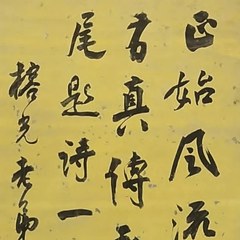 正始風流
有真傳
尾題詩一
榕光老弟